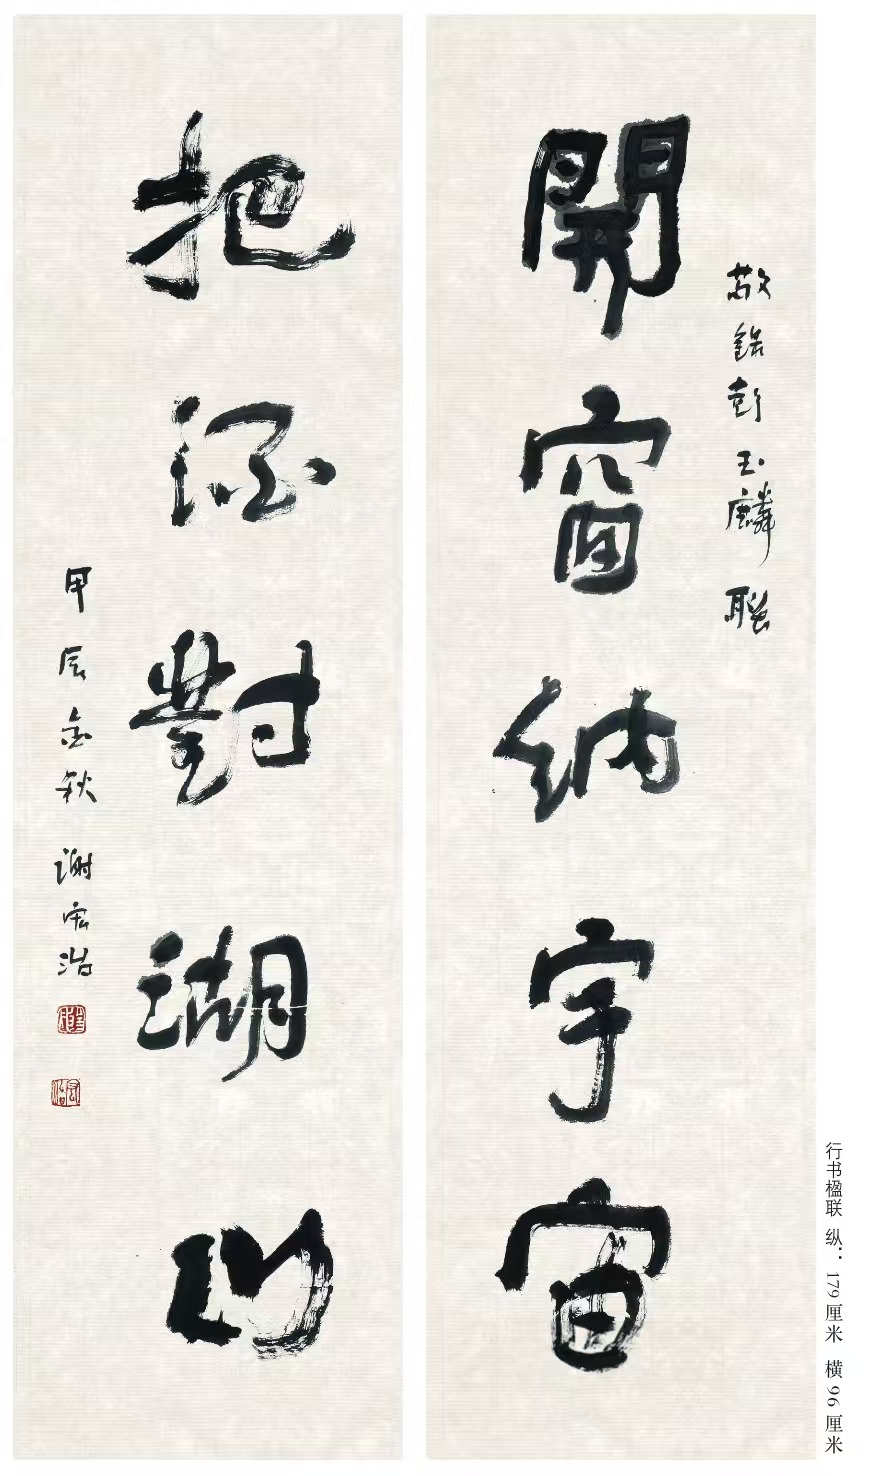 敬錄彭玉麟聯
開窗納宇宙
把酒對湖山
甲辰金秋 謝宏
行书楹联 纵：179厘米 横 96厘米